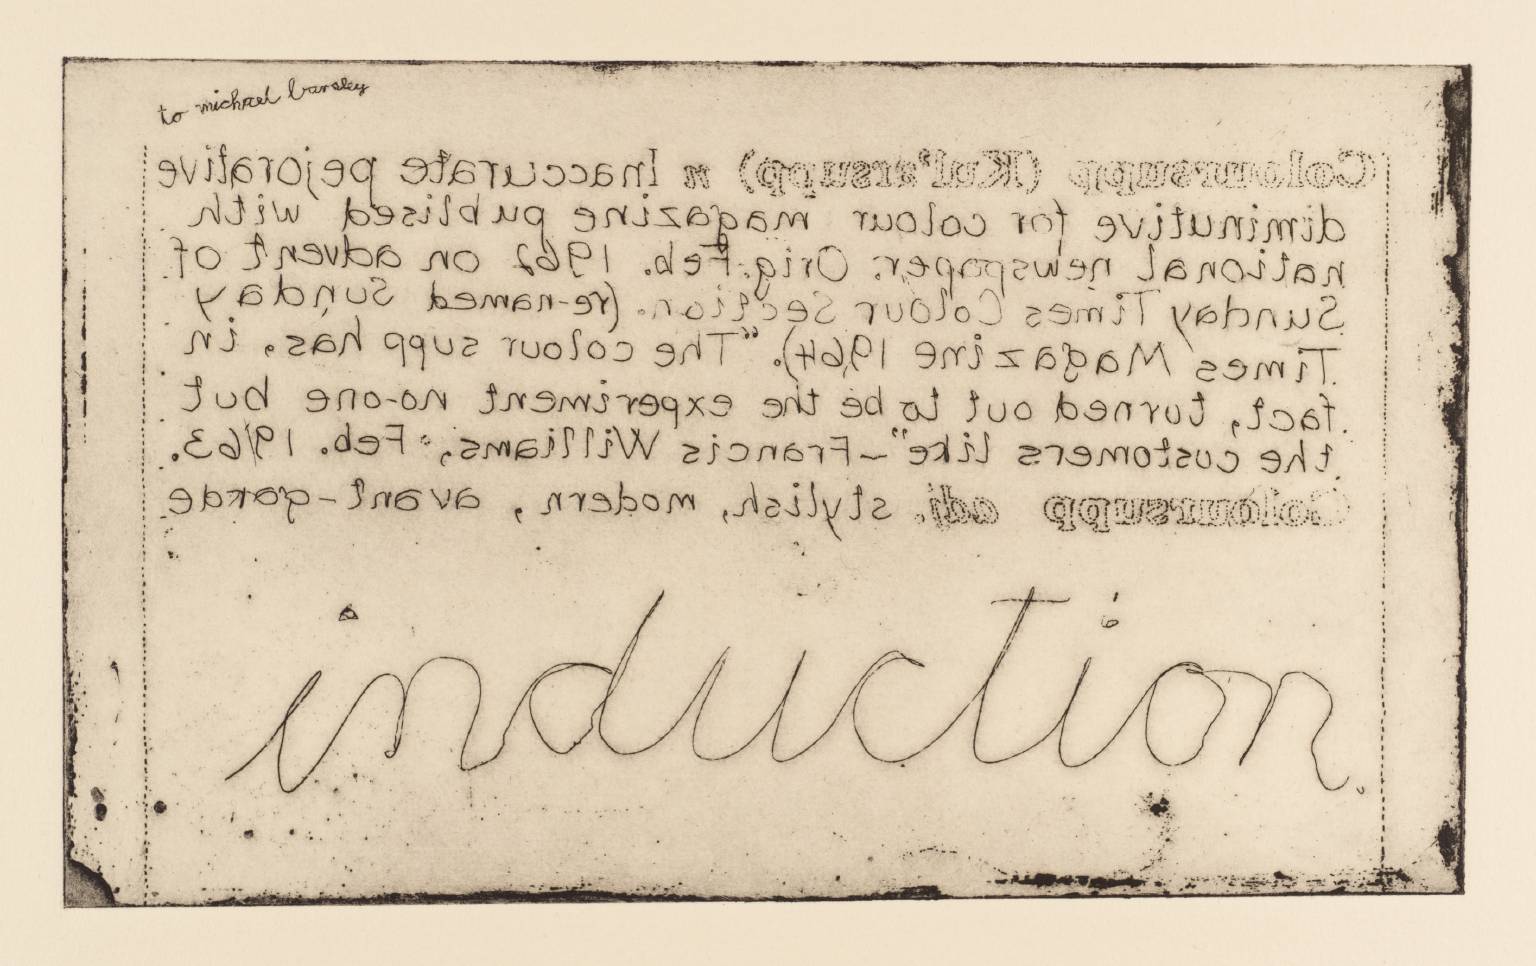 to michael barsley
Coloursupp (Kul'ersupp) n Inaccurate pejorative
diminutive for colour magazine publised with
national newspaper. Orig. Feb. 1962 on advent of
Sunday Times Colour Section. (re-named Sunday
Times Magazine 1964). "The colour supp has, in
fact, turned out to be the experiment no-one but
the customers like" – Francis Williams, Feb. 1963.
Coloursupp adj. stylish, modern, avant-garde
induction.